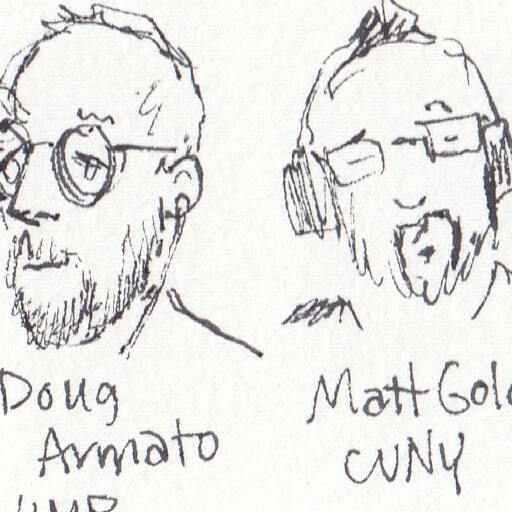 Doug
Armato
UMP
Matt Gold
CUNY